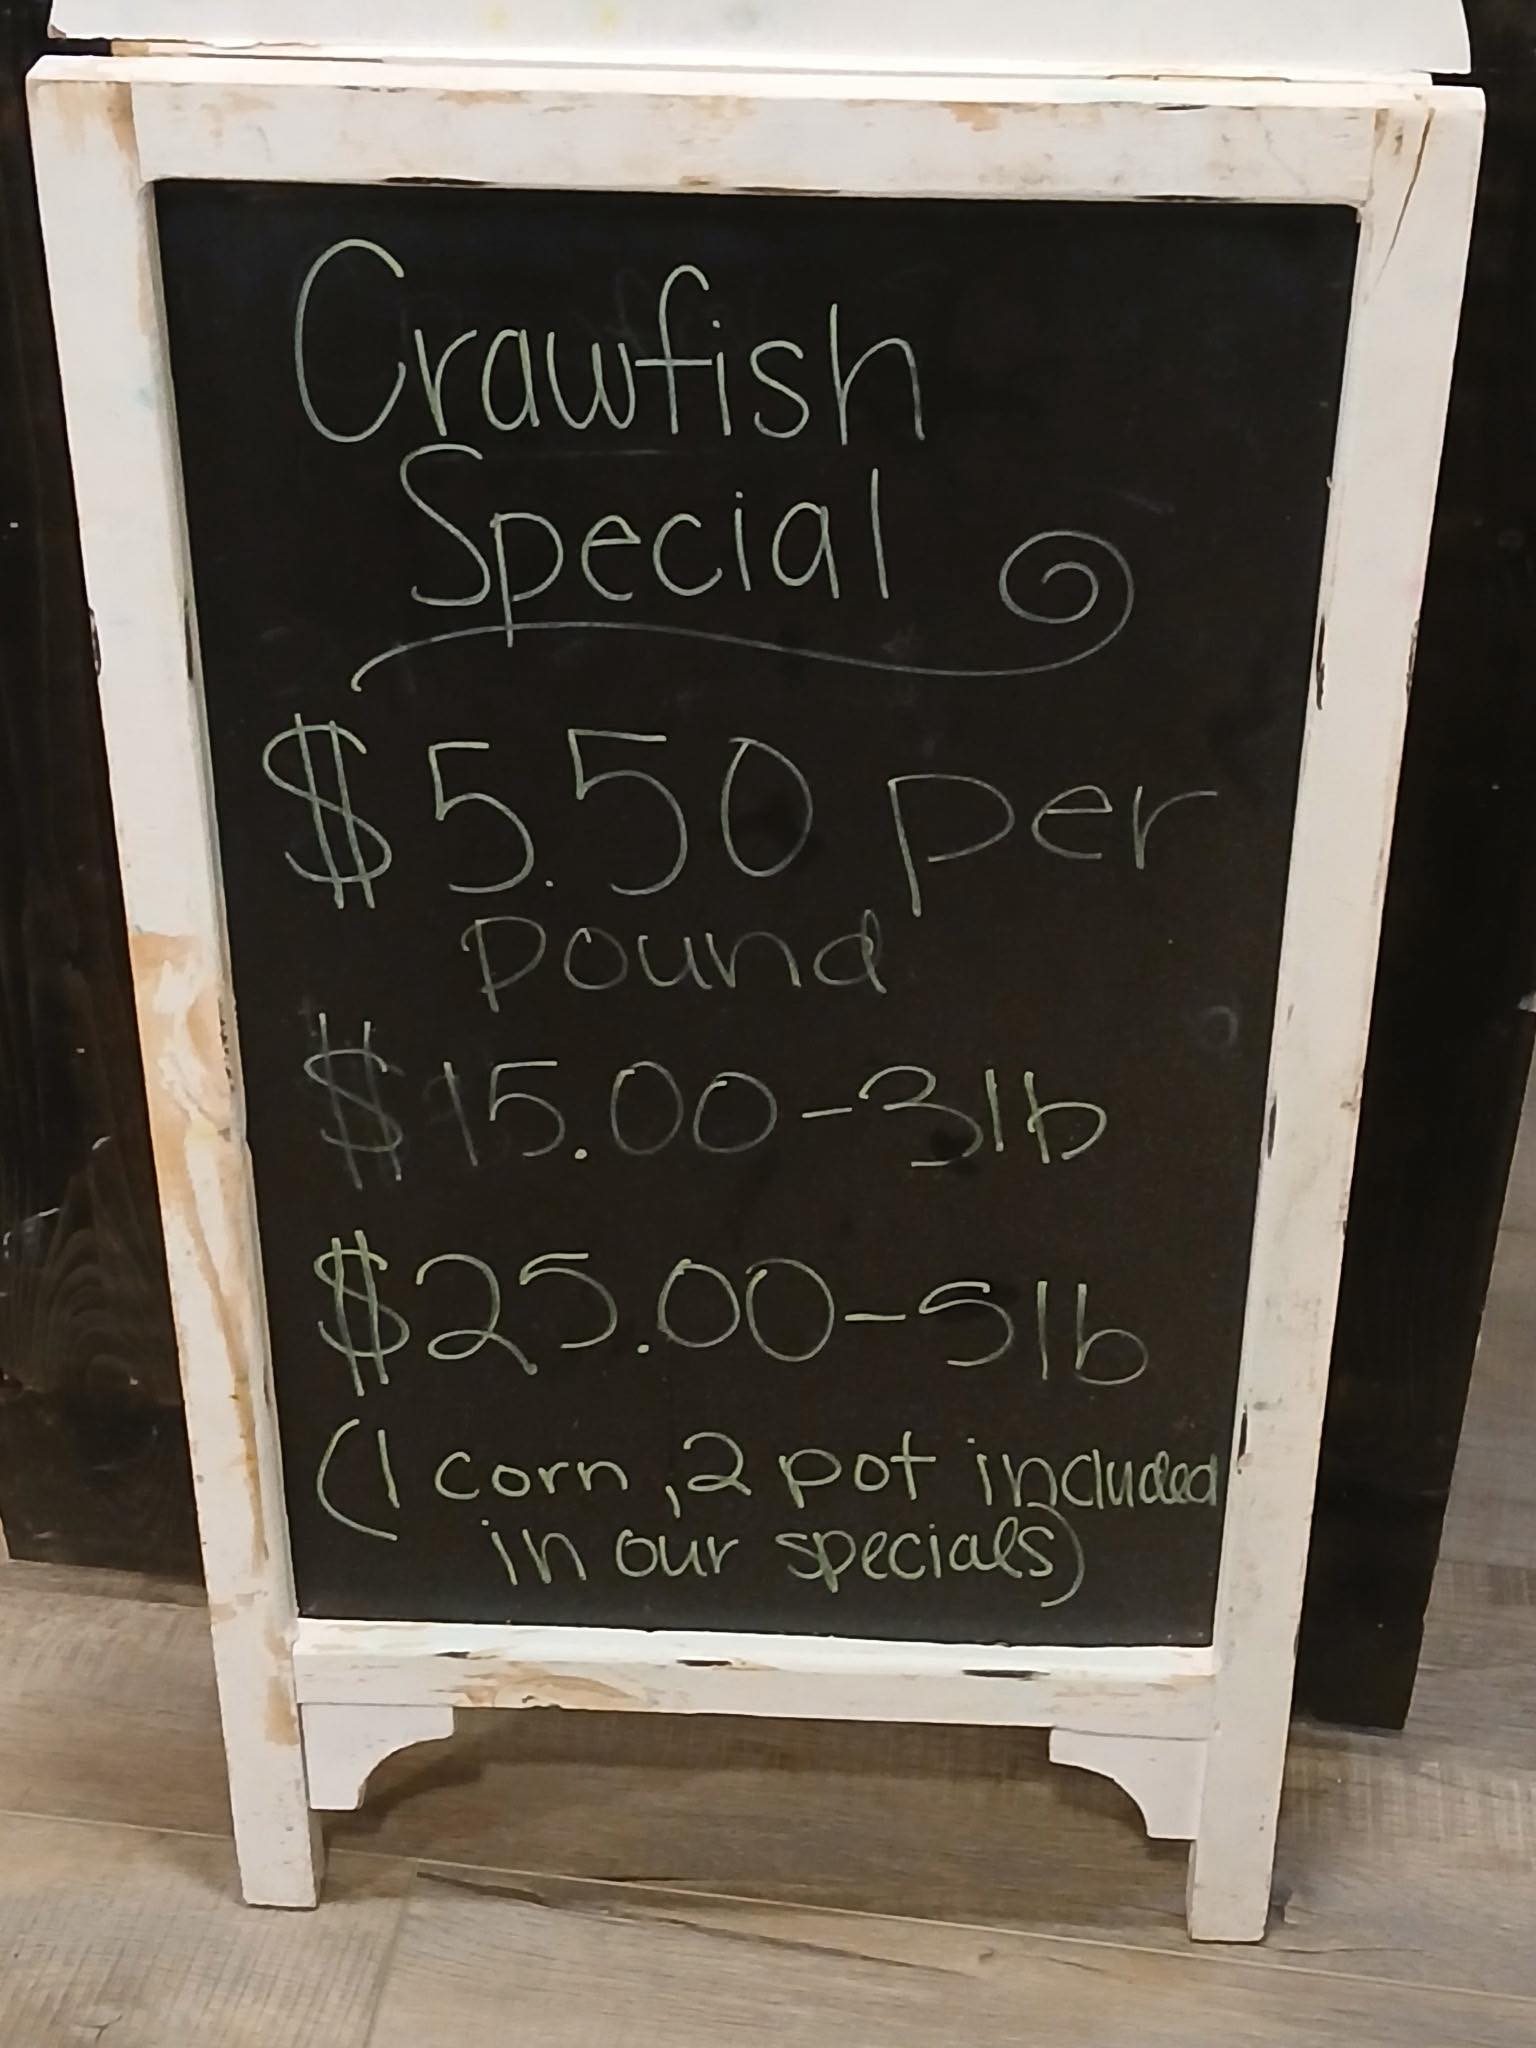 Crawfish
Special
$5.50 per
pound
$15.00-3lb
$25.00-5lb
(1 corn, 2 pot included
in our specials)